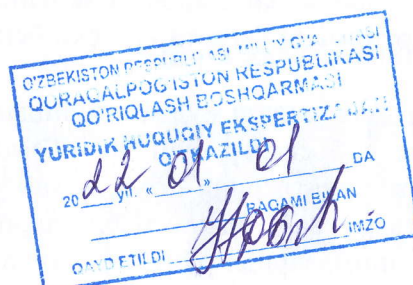 O'ZBEKISTON RESPUBLIKASI MILLIY GVARDIYASI
QORAQALPOG'ISTON RESPUBLIKASI
QO'RIQLASH BOSHQARMASI
YURIDIK HUQUQIY EKSPERTIZADAN
O'TKAZILDI
20 22 yil. « 01 » 01 DA
RAQAMI BILAN
QAYD ETILDI IMZO